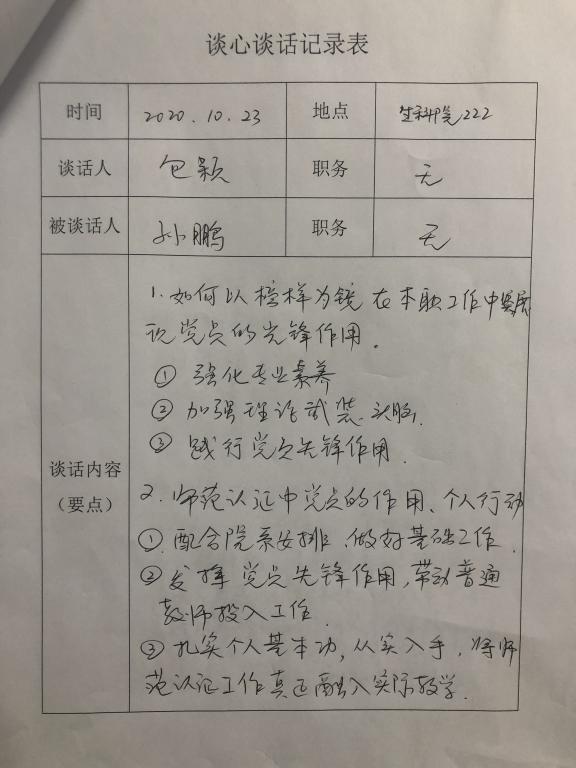 谈心谈话记录表
时间 2020.10.23 地点 生科院222
谈话人 包颖 职务 无
被谈话人 孙鹏 职务 无
谈话内容
（要点）
1. 如何以榜样为镜在本职工作中展
现党员的先锋作用.
① 强化专业素养
② 加强理论武装头脑.
③ 践行党员先锋作用.
2. 师范认证中党员的作用、个人行动
① 配合院系安排、做好基础工作.
② 发挥党员先锋作用,带动普通
教师投入工作.
③ 扎实个人基本功,从实入手,将师
范认证工作真正融入实际教学.